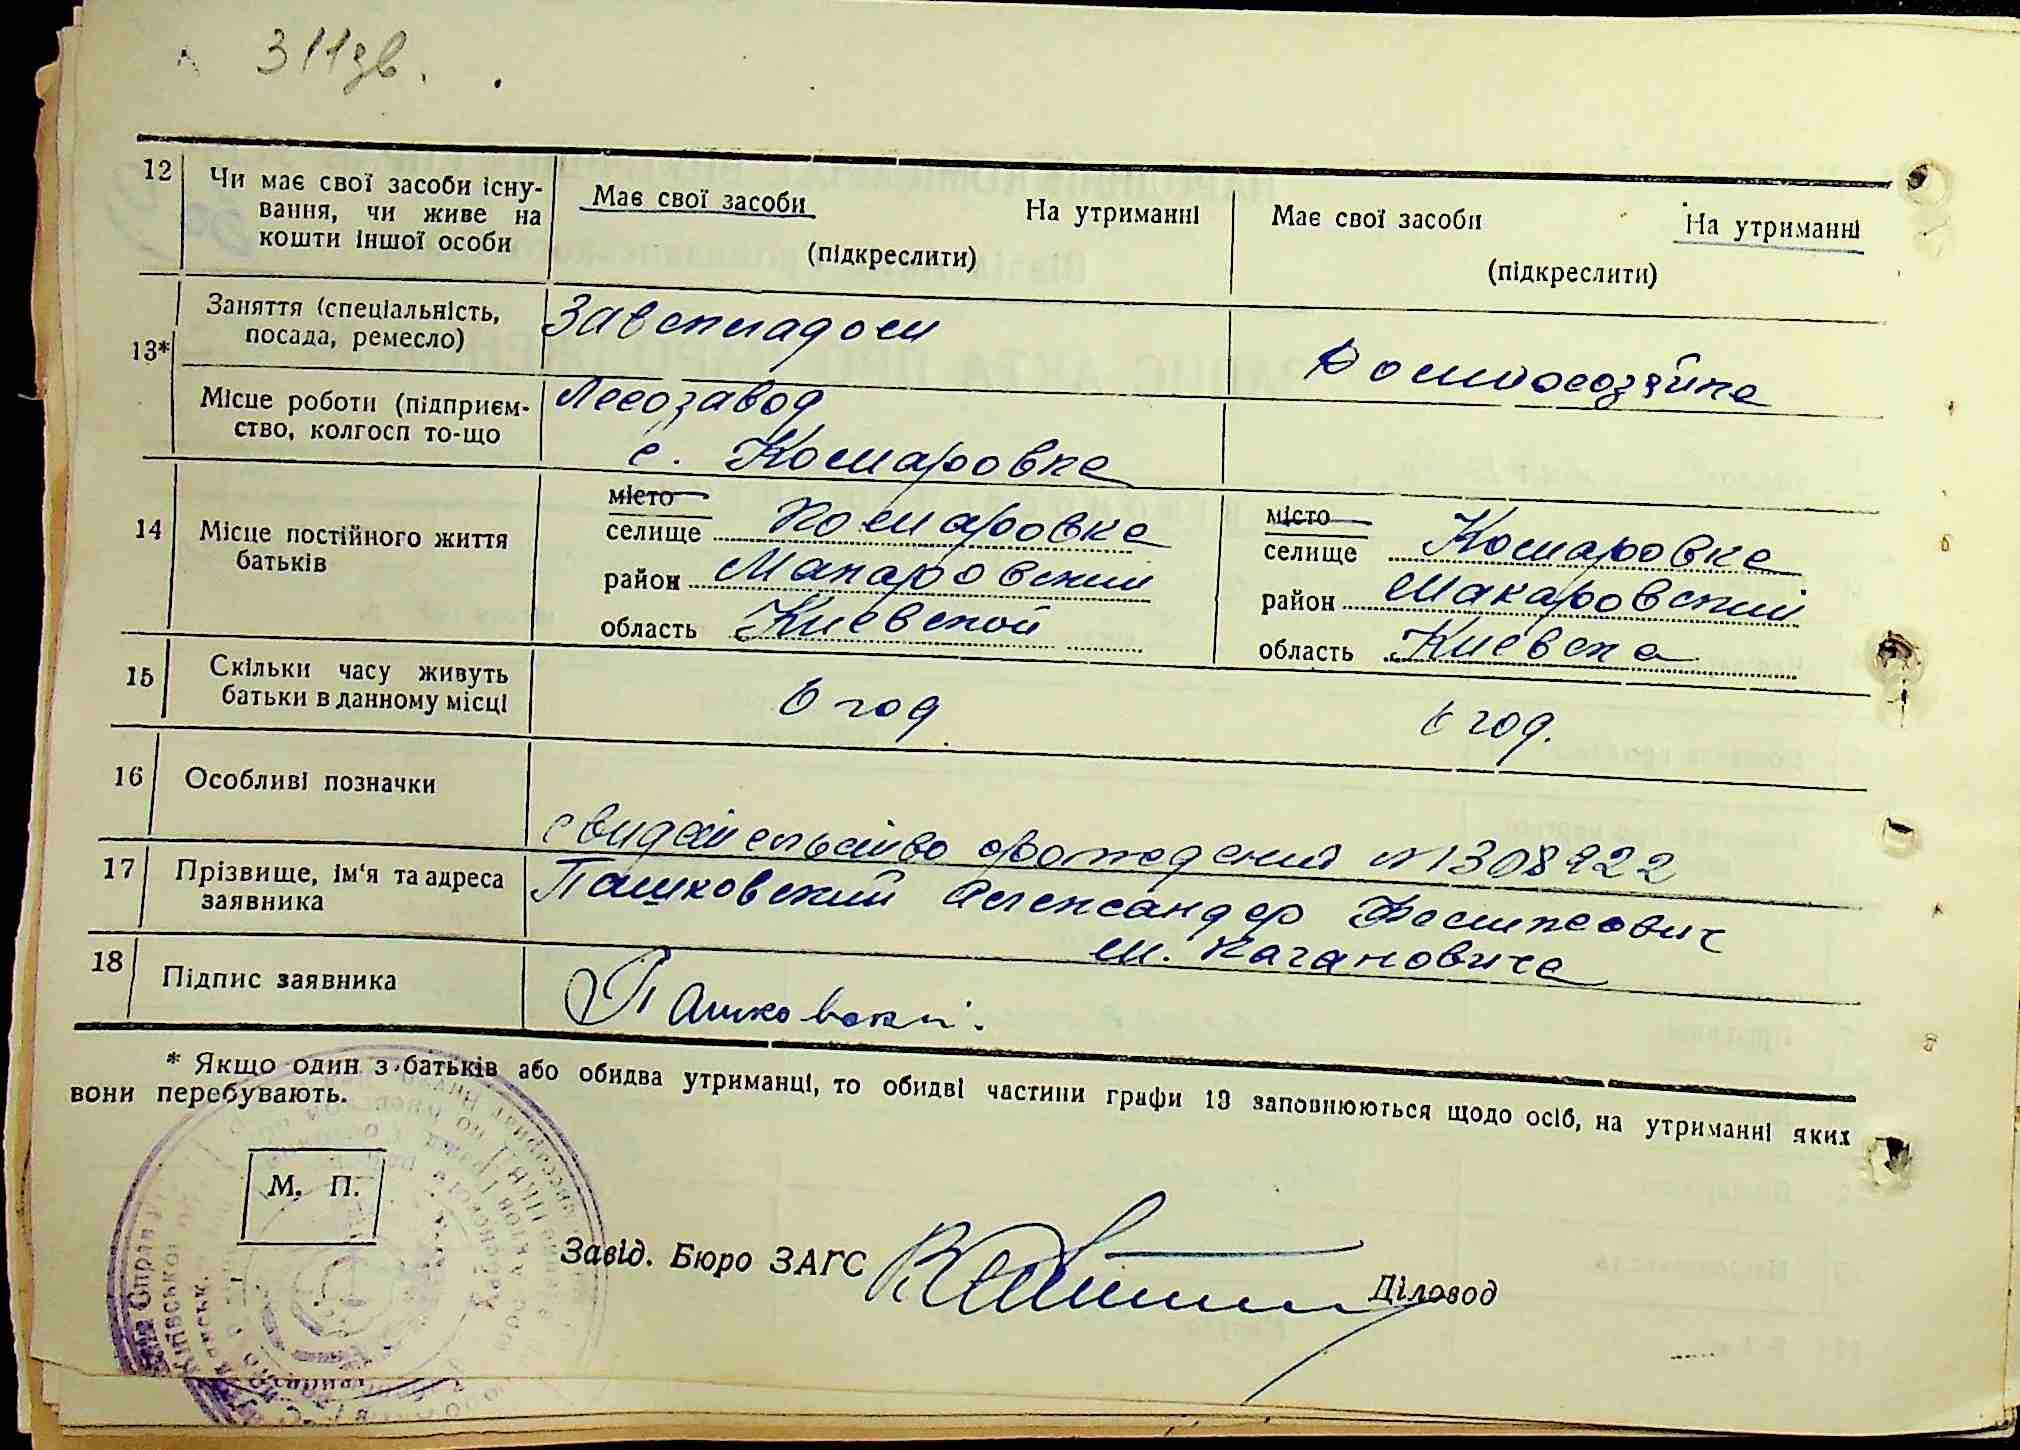 311зв.
12 Чи має свої засоби існу-
вання, чи живе на
кошти іншої особи
Має свої засоби На утриманні
(підкреслити)
Має свої засоби На утриманні
(підкреслити)
13*
Заняття (спеціальність,
посада, ремесло)
Завскладом
Домохозяйка
Місце роботи (підприєм-
ство, колгосп то-що
Лесозавод
с. Комаровка
14 Місце постійного життя
батьків
місто
селище Комаровка
район Макаровский
область Киевской
місто
селище Комаровка
район Макаровский
область Киевска
15 Скільки часу живуть
батьки в данному місці
6 год
6 год.
16 Особливі позначки
свидетельство о рождении №
17 Прізвище, ім'я та адреса
заявника
Пашковский Александр
м. Кагановича
18 Підпис заявника
Пашковски.
* Якщо один з батьків або обидва утриманці, то обидві частини графи 13 заповнюються щодо осіб, на утриманні яких
вони перебувають.
М. П.
Завід. Бюро ЗАГС
Діловод